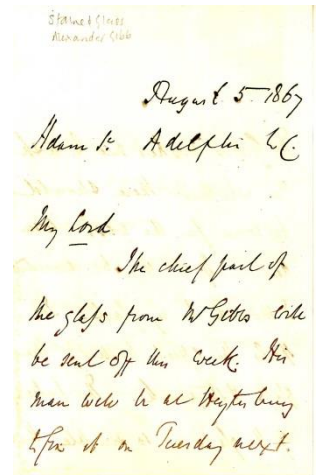 Stained Glass
Alexander Gibbs
August 5 1867
Adam St. Adelphi W C.
My Lord
The chief part of
the glass from Mr Gibbs will
be sent off this week. His
man will be at Heytesbury
to fix it on Tuesday next.